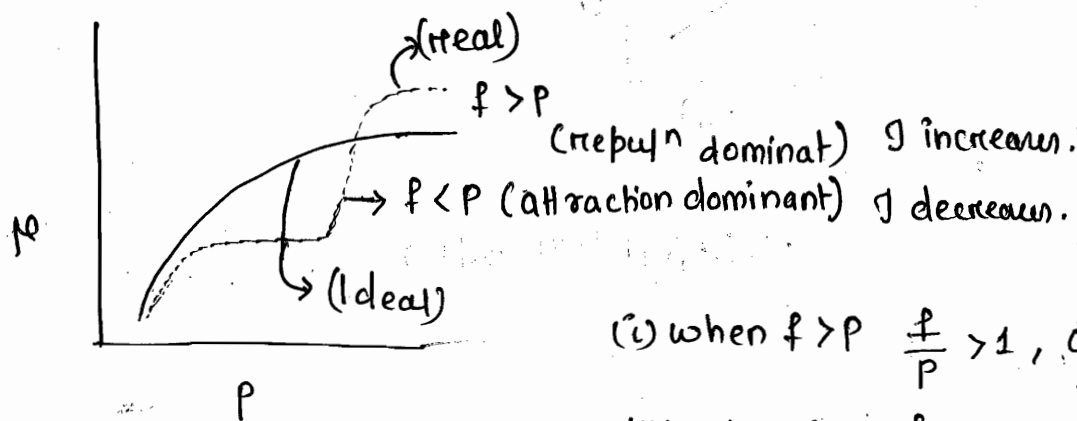 (real)
f > P
(repulⁿ dominat) J increases.
→ f < P (attraction dominant) J decreases.
μ
(Ideal)
(i) when f > P f/P > 1 ,
P